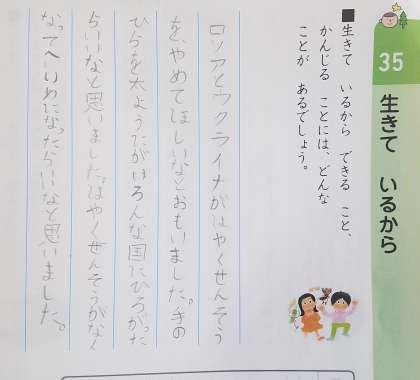 35
生きて いるから
■生きて いるから できる こと、
かんじる ことには、どんな
ことが あるでしょう。
ロシアとウクライナがはやくせんそう
を、やめてほしいなとおもいました。手の
ひらを太ようにがいろんな国にひろがった
らいいなと思いました。はやくせんそうがなく
なってへいわになったらいいなと思いました。